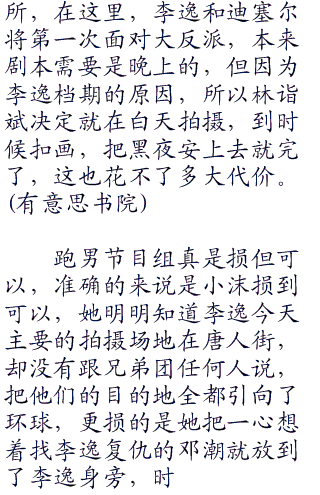 所，在这里，李逸和迪塞尔
将第一次面对大反派，本来
剧本需要是晚上的，但因为
李逸档期的原因，所以林诣
斌决定就在白天拍摄，到时
候扣画，把黑夜安上去就完
了，这也花不了多大代价。
(有意思书院)
跑男节目组真是损但可
以，准确的来说是小沫损到
可以，她明明知道李逸今天
主要的拍摄场地在唐人街，
却没有跟兄弟团任何人说，
把他们的目的地全都引向了
环球，更损的是她把一心想
着找李逸复仇的邓潮就放到
了李逸身旁，时